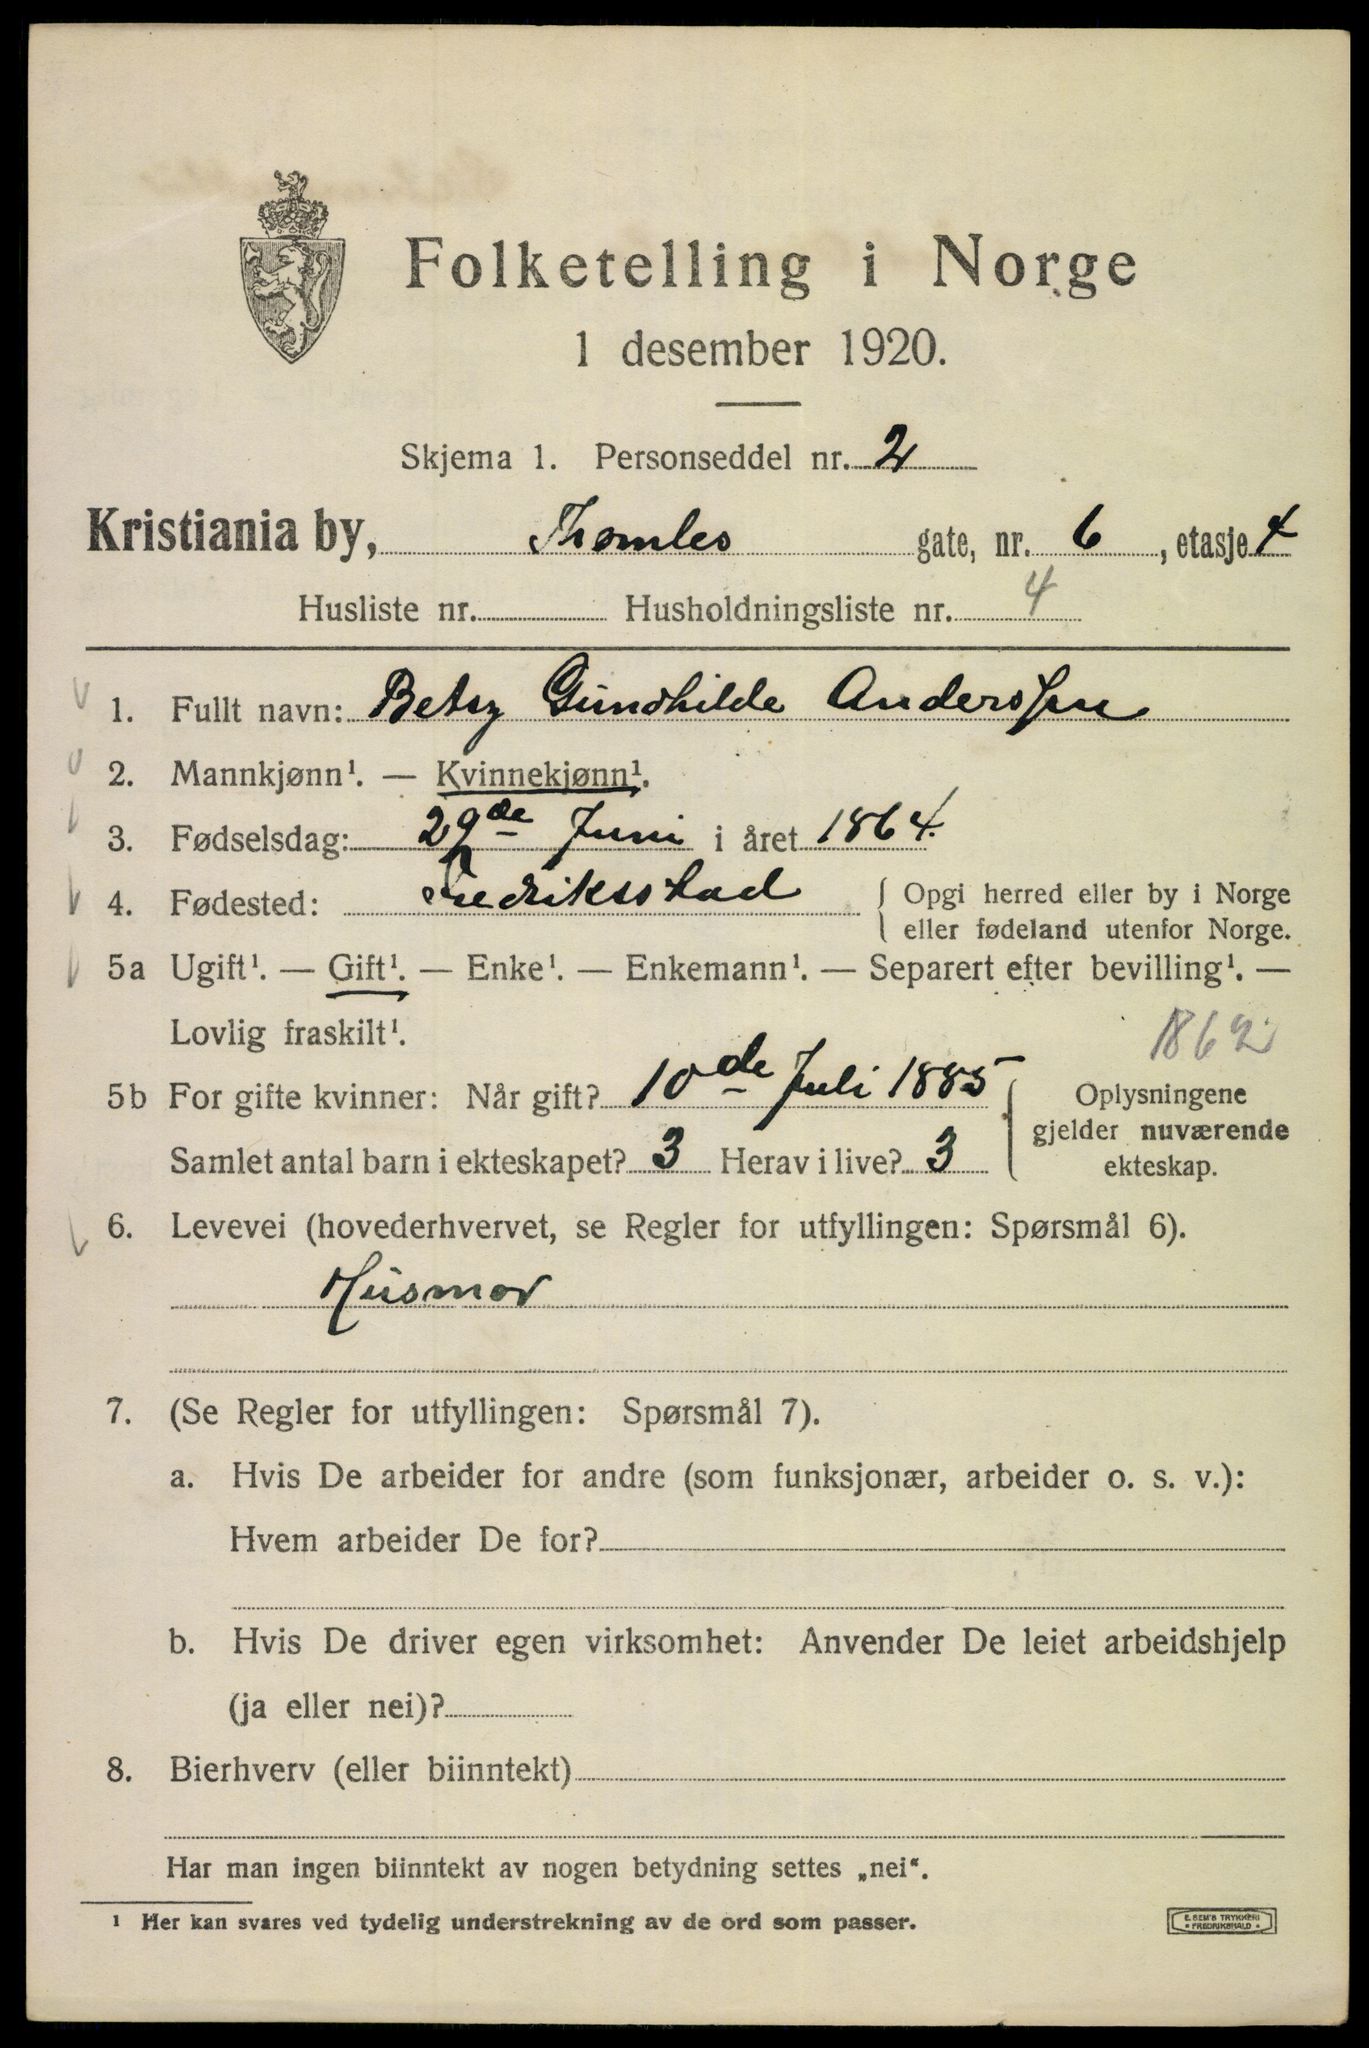 Folketelling i Norge
1 desember 1920.
Skjema 1. Personseddel nr. 2
Kristiania by, Thomles gate, nr. 6, etasje 4
Husliste nr. Husholdningsliste nr. 4
1. Fullt navn: Betsy Gundhilde Anderssen
2. Mannkjønn¹. — Kvinnekjønn¹.
3. Fødselsdag: 29de Juni i året 1864.
4. Fødested: Fredriksstad { Opgi herred eller by i Norge
eller fødeland utenfor Norge.
5a Ugift¹. — Gift¹. — Enke¹. — Enkemann¹. — Separert efter bevilling¹. —
Lovlig fraskilt¹. 1862
5b For gifte kvinner: Når gift? 10de Juli 1885 { Oplysningene
gjelder nuværende
Samlet antal barn i ekteskapet? 3 Herav i live? 3 ekteskap.
6. Levevei (hovederhvervet, se Regler for utfyllingen: Spørsmål 6).
Husmor
7. (Se Regler for utfyllingen: Spørsmål 7).
a. Hvis De arbeider for andre (som funksjonær, arbeider o. s. v.):
Hvem arbeider De for?
b. Hvis De driver egen virksomhet: Anvender De leiet arbeidshjelp
(ja eller nei)?
8. Bierhverv (eller biinntekt)
Har man ingen biinntekt av nogen betydning settes „nei“.
¹ Her kan svares ved tydelig understrekning av de ord som passer.
E. SEM'S TRYKKERI
FREDRIKSHALD